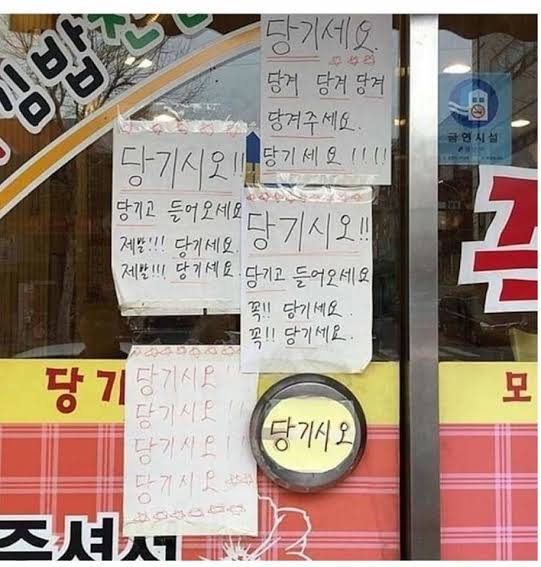 김밥천
당기세요.
당겨 당겨 당겨
당겨주세요.
당기세요!!!!
금연시설
당기시오!!
당기고 들어오세요
제발!!! 당기세요.
제발!!! 당기세요.
당기시오!!
당기고 들어오세요
꼭!! 당기세요.
꼭!! 당기세요.
당기시오!!
당기시오!!
당기시오!!
당기시오
당기
당기시오
모
주셔서